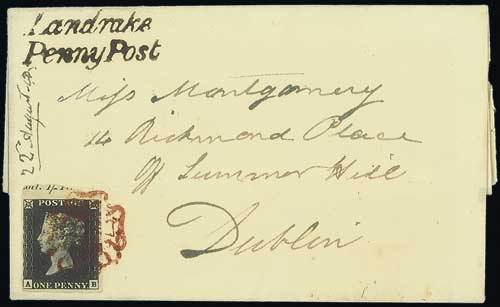 Landrake
Penny Post
Miss Montgomery
14 Richmond Place
Off Summer Hill
Dublin
22d August
POSTAGE
A ONE PENNY B